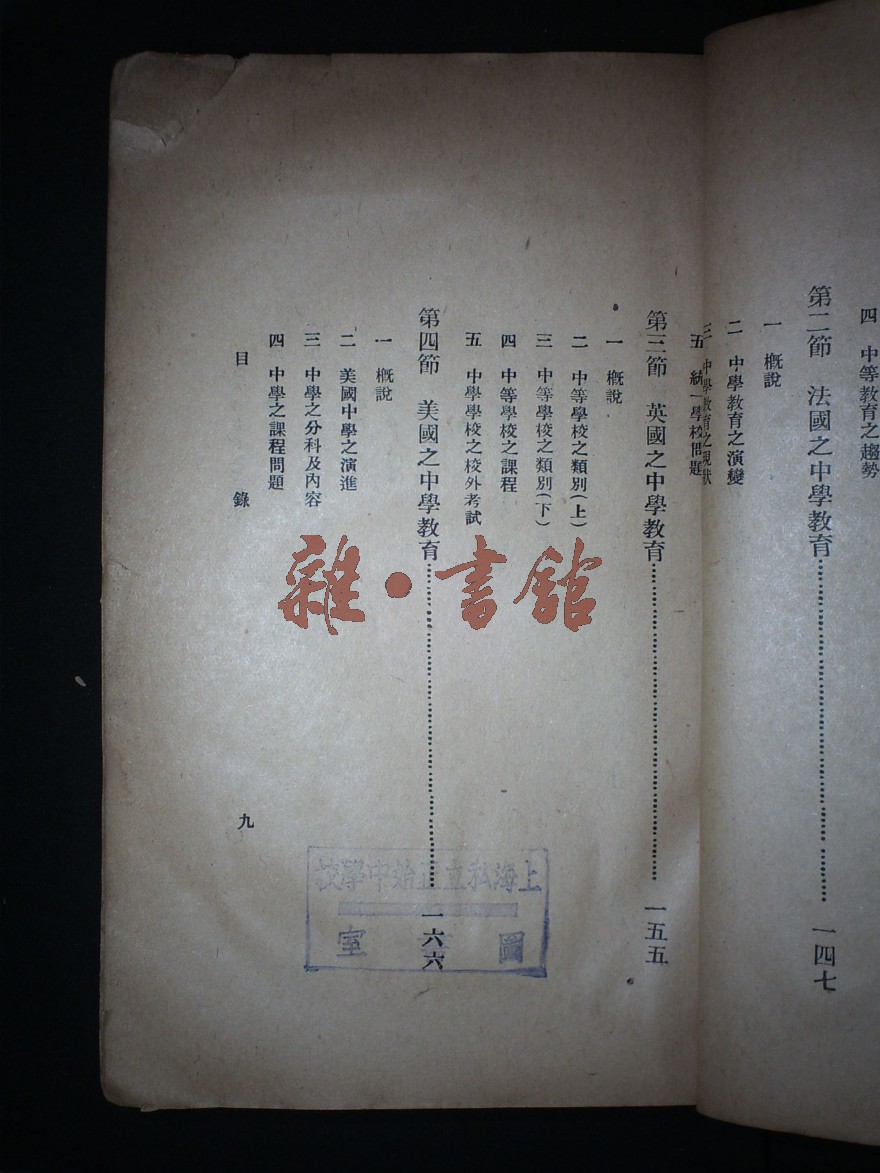 四　中等教育之趨勢
第二節　法國之中學教育……………………一四七
一　概說
二　中學教育之演變
三　中學教育之現狀
五　統一學校問題
第三節　英國之中學教育……………………一五五
一　概說
二　中等學校之類別(上)
三　中等學校之類別(下)
四　中等學校之課程
五　中學學校之校外考試
第四節　美國之中學教育……………………一六六
一　概說
二　美國中學之演進
三　中學之分科及內容
四　中學之課程問題
目　錄　九
雜·書館
上海私立正始中學校
圖　室